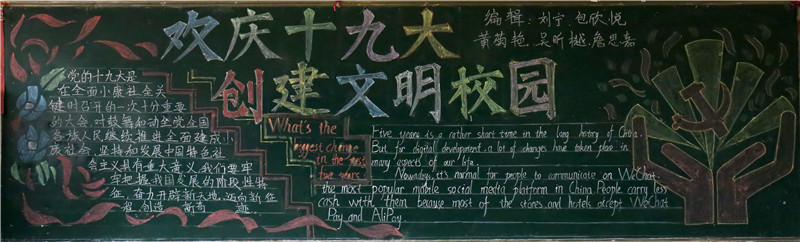 欢庆十九大
创建文明校园
编辑：刘宁 包欣悦
黄萄艳 吴昕樾 詹思嘉
党的十九大是
在全面小康社会关
键时召开的一次十分重要
的大会,对鼓舞和动全党全国
各族人民继续推进全面建成小
康社会、坚持和发展中国特色社
会主义具有重大意义,我们要牢
牢把握我国发展的阶段性特
征，奋力开辟新天地,迈向新征
程 创造 新奇 迹
What's the
biggest change
in the past
five years
Five years is a rather short time in the long history of China.
But for digital development, a lot of changes have taken place in
many aspects of our life.
Nowadays, it's normal for people to communicate on WeChat.
the most popular mobile social media platform in China. People carry less
cash with them because most of the stores and hotels accept WeChat
Pay and AliPay.